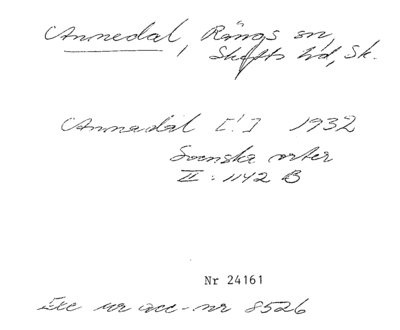 Annedal, Rängs sn,
Skytts hd, Sk.
Annadal [!] 1932
Svenska orter
II: 1142 B
Nr 24161
Exc ur acc-nr 8526